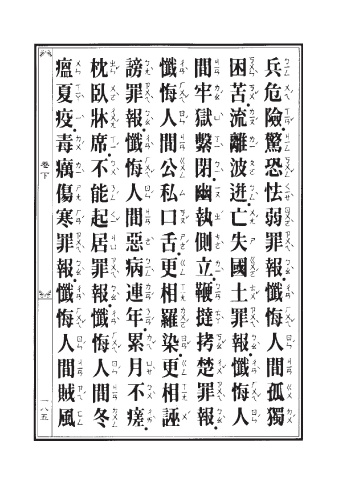 兵危險驚恐怯弱罪報懺悔人間孤獨
困苦流離波迸亡失國土罪報懺悔人
間牢獄繫閉幽執側立鞭撻拷楚罪報
懺悔人間公私口舌更相羅染更相誣
謗罪報懺悔人間惡病連年累月不瘥
枕臥牀席不能起居罪報懺悔人間冬
瘟夏疫毒癘傷寒罪報懺悔人間賊風
卷下
一八五